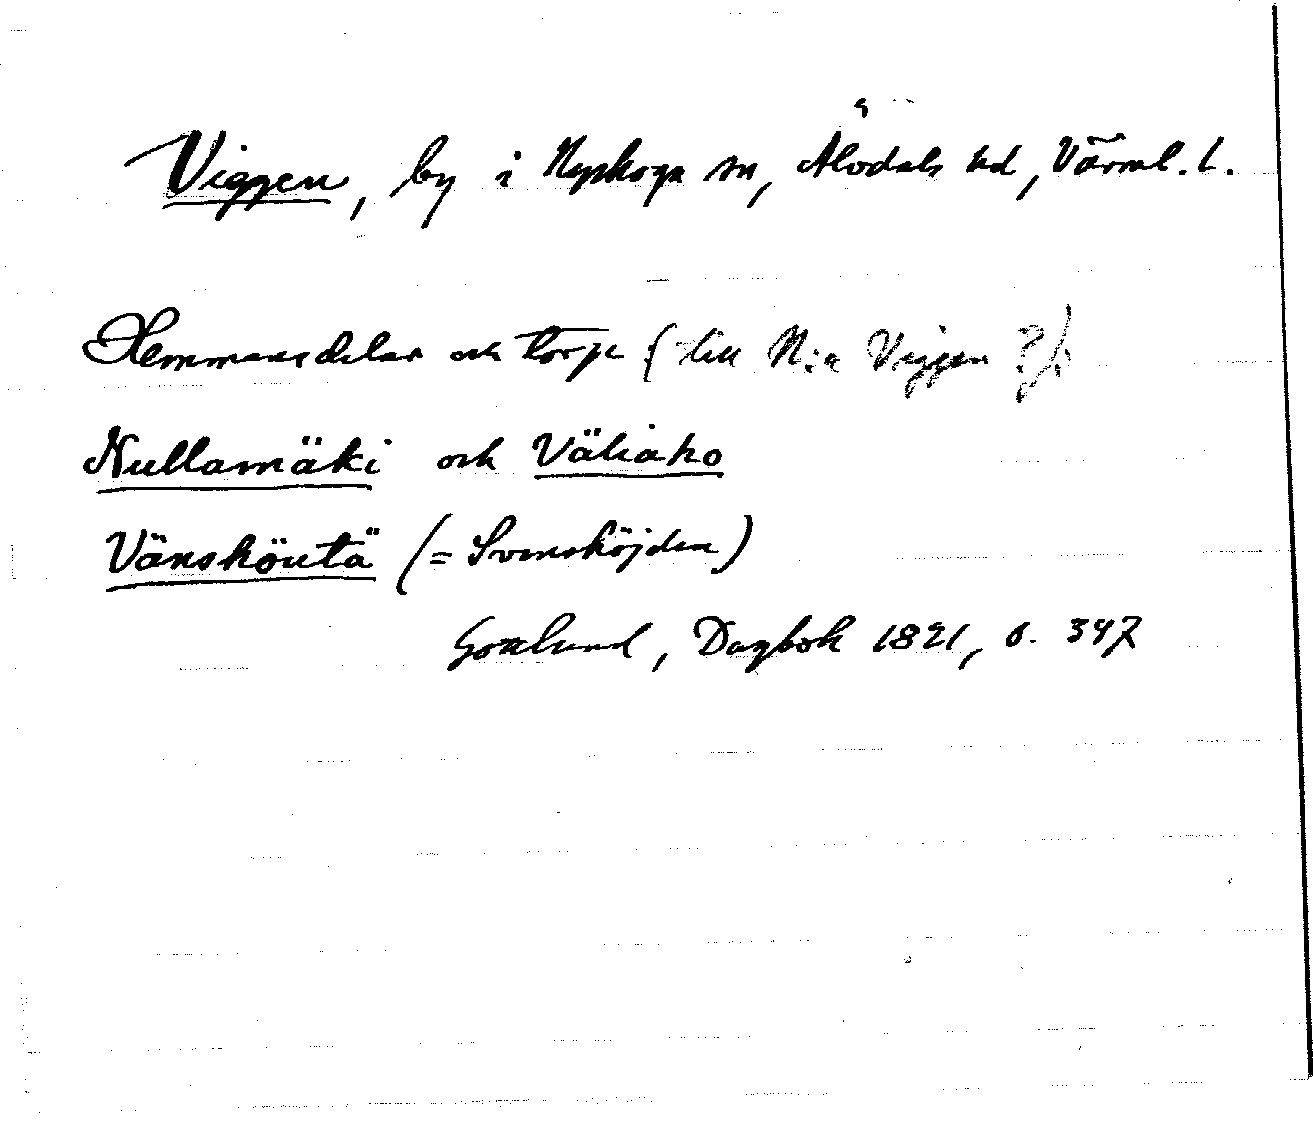 Viggen, by i Nyskoga sn, Älvdals hd, Värml. l.
Hemmansdelar och torp (till N:a Viggen ?):
Nullamäki och Väliaho
Vänsköutä (= Svensköjden)
Gottlund, Dagbok 1821, s. 347